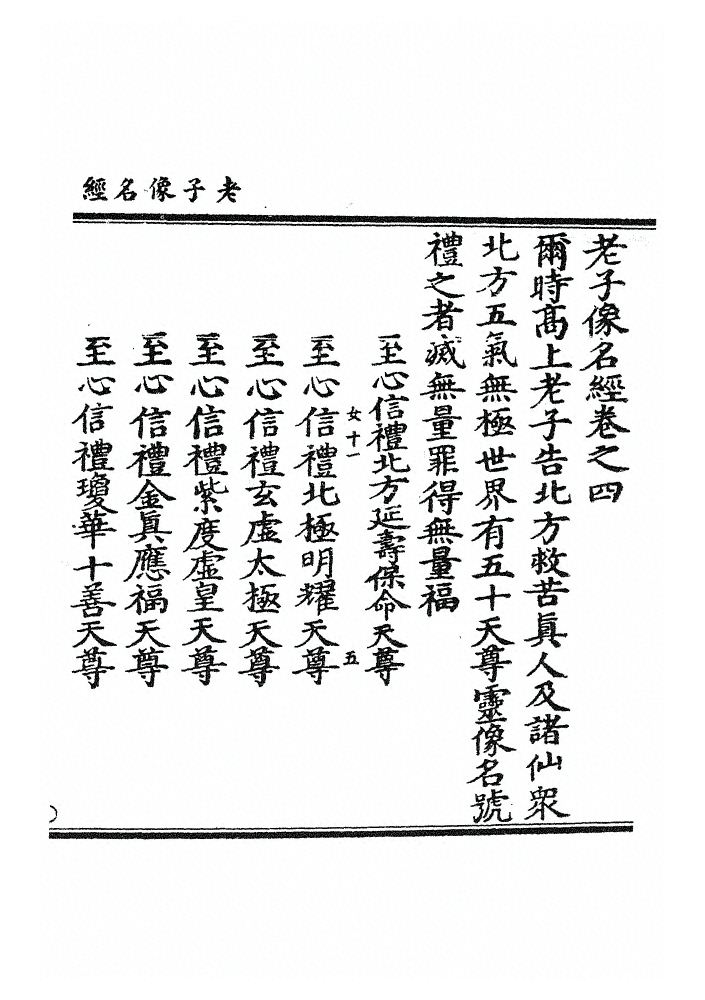 老子像名經
老子像名經卷之四
爾時高上老子告北方救苦眞人及諸仙衆
北方五氣無極世界有五十天尊靈像名號
禮之者滅無量罪得無量福
至心信禮北方延壽保命天尊
女十一
五
至心信禮北極明耀天尊
至心信禮玄虛太極天尊
至心信禮紫度虛皇天尊
至心信禮金眞應福天尊
至心信禮瓊華十善天尊